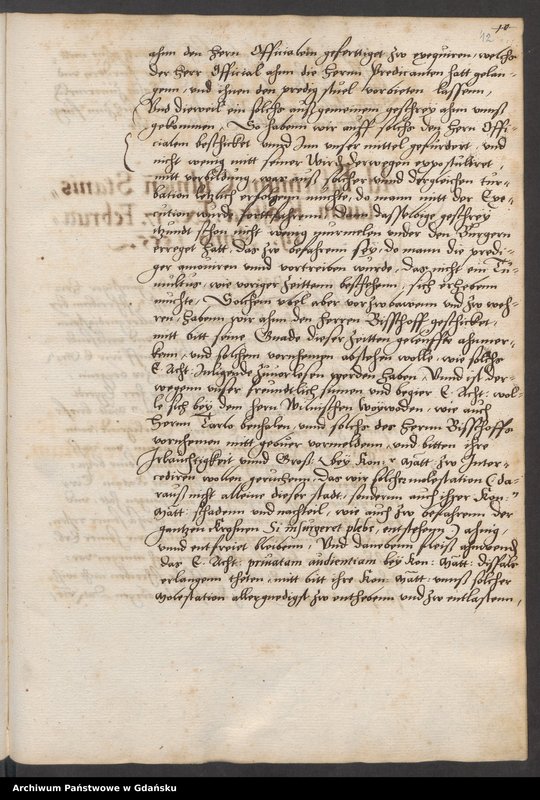 12
ahm den Hern Officialen gefertiget zw exequiren, welche
der Herr Official ahm die Herrn Predicanten hatt gelan-
genn, und ihnen den predig stuel vorbieten lassenn,
Vns dieweil ein solchs auß gemeinem geschrey ahn vnnß
gekommen, So habenn wir auff solchs den Hern Offi-
cialem beschicket vnnd Inn unser mittel gefurdert, und
nicht wenig mitt seiner Wird. derwegen expostuliret,
mitt vorbildung, was auß solcher vnnd dergleichen tur-
bation letzlich erfolgenn muchte, do mann mitt der Exe-
cution wurde fortfahrenn, denn dasselbige geschrey
itzundt schon nicht wenig murmelen under den Burgern
erreget hatt, das zw befahrenn sey, do mann die predi-
ger amoviren vnnd vortreiben wurde, das nicht ein Tu-
multus, wie voriger Zeittenn beschehenn, sich erhebenn
muchte, Solchem vbel aber vorzwbawenn und zw weh-
ren, habenn wir ahm den Herren Bischoff geschicket,
mitt bitt seine Gnade dieser Zeitten geleuffte ahnmer-
ken, und solchem vornehmen abstehen wolle, wie solche
E. Acht: Inligende zuvorlesen werden haben, Vnnd ist der-
wegenn vnser freundtlich sinnen und beger E. Acht: wol-
le sich bey dem Hern Wilnischen Woywoden, wie auch
Herrn Carlo bemhelen, und solche des Herrn Bisschoffs
vornehmen mitt gebuer vormeldenn, und bitten ihre
Irlauchtigkeit vnnd Groß: bey Kon: Matt: zw Inter-
cediren wollen geruhenn, das wir solcher molestation (da-
rauß nicht alleine dieser stadt, sondernn auch ihrer Kon:
Matt: schadenn und nachteil, wie auch zw befahrenn der
gantzenn Krohnen Si insurgeret plebs, entstehenn) ahnig,
vnnd entfreiet bleibenn, Vnd danebenn fleiß ahnwende
das E. Acht: privatam audientiam bey Kon: Matt: dißfals
erlangenn thetenn, mitt bitt ihre Kon: Matt: vnnß solcher
molestation allergnedigst zw enthebenn und zw entlastenn,
Archiwum Państwowe w Gdańsku